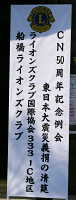 CN50周年記念例会
東日本大震災義捐の清莚
ライオンズクラブ国際協会333-C地区
船橋ライオンズクラブ